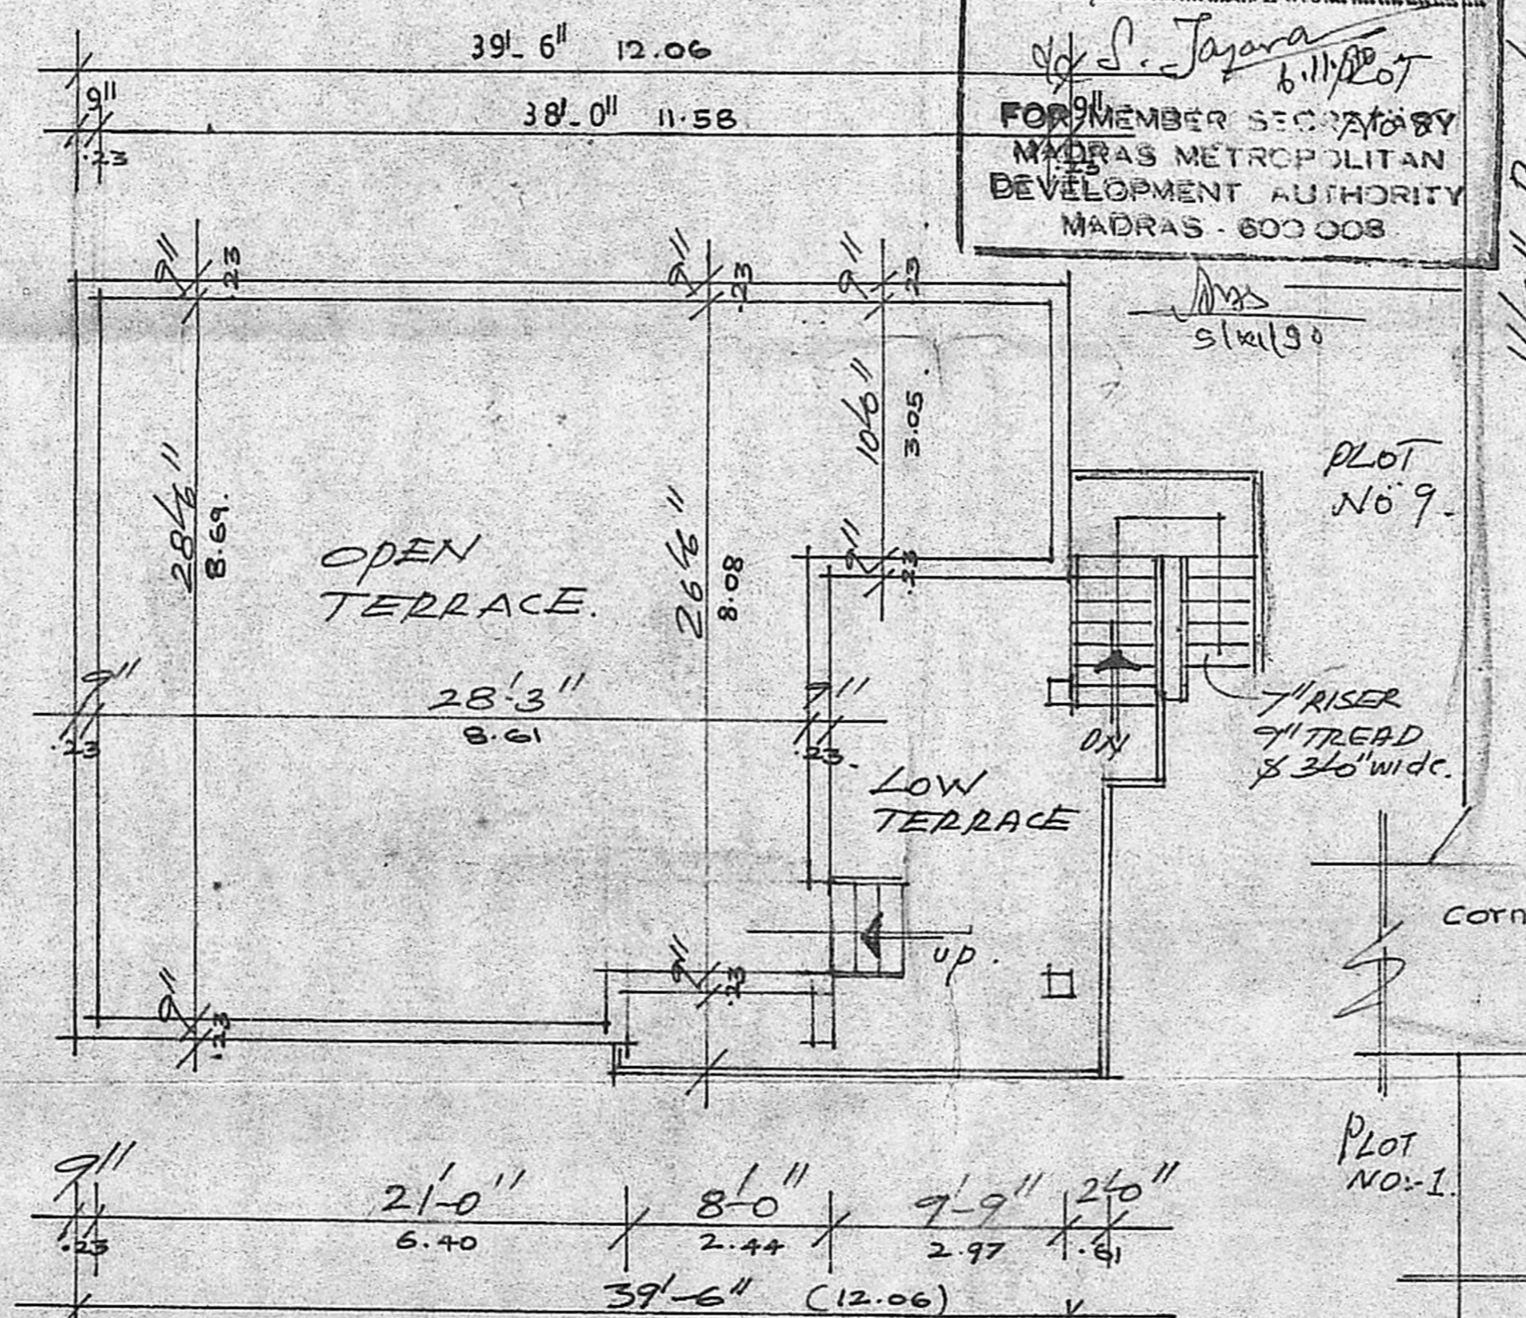 39'-6" 12.06
9"
38'-0" 11.58
9"
.23
.23
S. Jayara
6.11.90
PLOT
No 8
FOR MEMBER SECRETARY
MADRAS METROPOLITAN
DEVELOPMENT AUTHORITY
MADRAS - 600 008
9" .23
9" .23
9" .23
28'6"
8.69.
OPEN
TERRACE.
26'6"
8.08
10'0"
3.05.
9" .23
PLOT
NO 9.
9"
.23
28'-3"
8.61
9"
.23.
DN
7" RISER
9" TREAD
& 3'0" wide.
LOW
TERRACE
up.
9" .23
9" .23
corn
PLOT
NO:-1.
9"
.23
21'-0"
6.40
8'-0"
2.44
9'-9"
2.97
2'0"
.61
39'-6" (12.06)